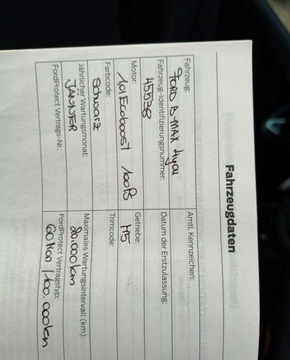 Fahrzeugdaten
Fahrzeug:
FORD B-MAX
Amtl. Kennzeichen:
Fahrzeug-Identifizierungsnummer:
45538
Datum der Erstzulassung:
Motor:
1,0l Ecoboost 100PS
Getriebe:
M5
Farbcode:
Schwarz
Trimcode:
Jährlicher Wartungsmonat:
JÄNNER
Maximales Wartungsintervall (km):
20.000 km
FordProtect Vertrags-Nr.:
FordProtect Vertragstyp:
60 Mon / 100.000km